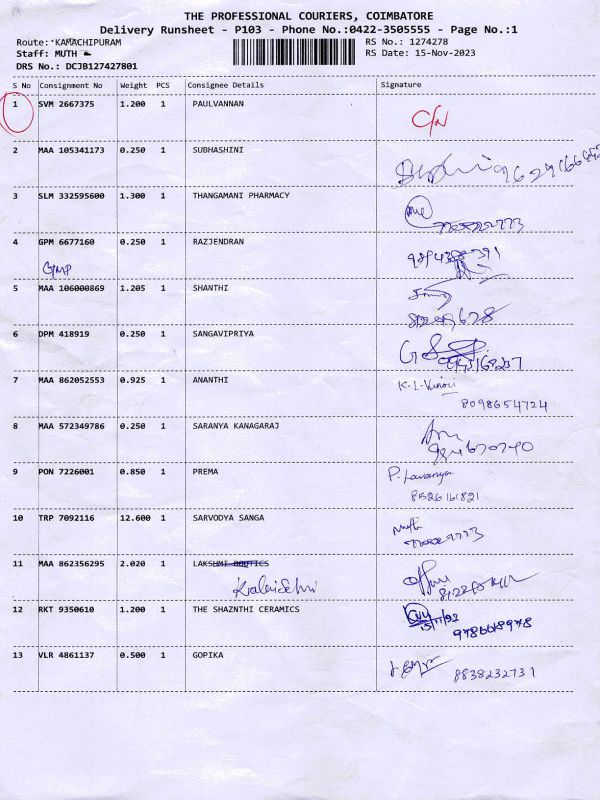 THE PROFESSIONAL COURIERS, COIMBATORE
Delivery Runsheet - P103 - Phone No.:0422-3505555 - Page No.:1
Route: KAMACHIPURAM RS No.: 1274278
Staff: MUTH RS Date: 15-Nov-2023
DRS No.: DCJB127427801
S No Consignment No Weight PCS Consignee Details Signature
1 SVM 2667375 1.200 1 PAULVANNAN
2 MAA 105341173 0.250 1 SUBHASHINI
3 SLM 332595600 1.300 1 THANGAMANI PHARMACY
4 GPM 6677160 0.250 1 RAZJENDRAN
5 MAA 106000869 1.205 1 SHANTHI
6 DPM 418919 0.250 1 SANGAVIPRIYA
7 MAA 862052553 0.925 1 ANANTHI
8098654724
8 MAA 572349786 0.250 1 SARANYA KANAGARAJ
9 PON 7226001 0.850 1 PREMA P. Lavanya
8526161821
10 TRP 7092116 12.600 1 SARVODYA SANGA
11 MAA 862356295 2.020 1 LAKSHMI BOUTICS
12 RKT 9350610 1.200 1 THE SHAZNTHI CERAMICS
9786618978
13 VLR 4861137 0.500 1 GOPIKA 8838232731